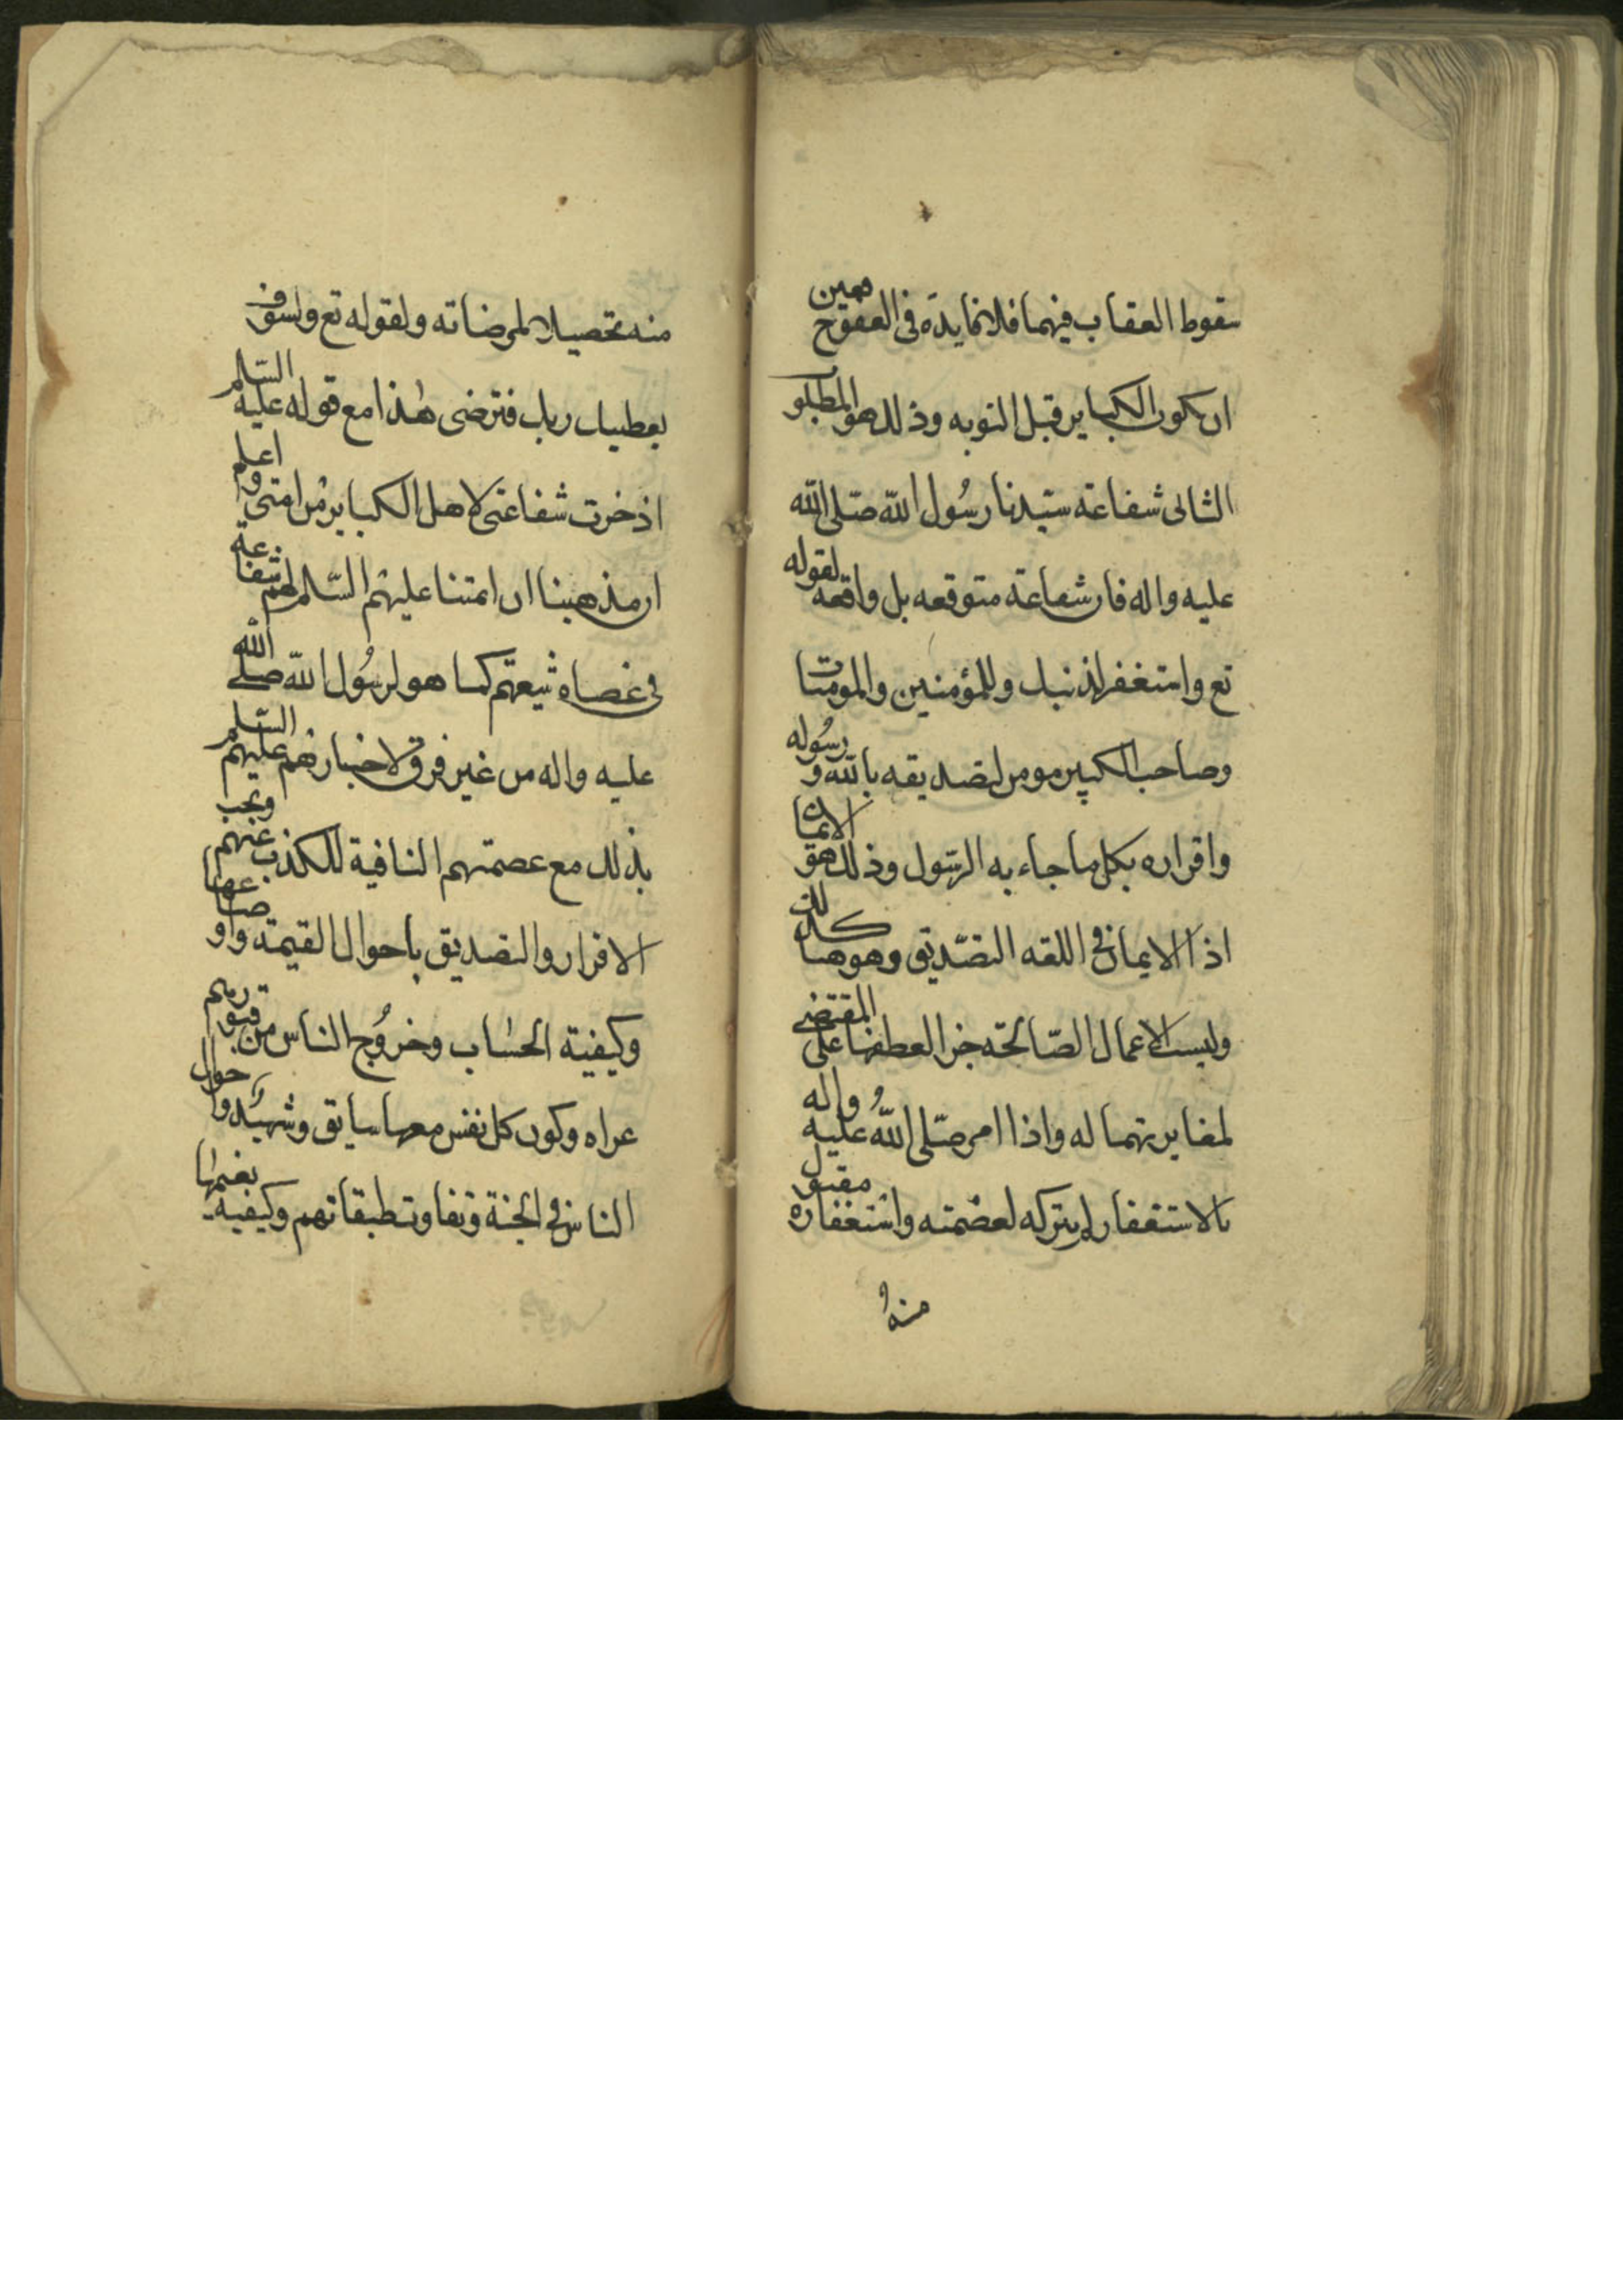 سقوط العقاب فيهما فلا فايدة فى العفو ح
ان يكون الكباير قبل التوبه وذلك هو المطلو
الثانى شفاعة سيدنا رسُول اللّه صلى اللّه
عليه واله فان شفاعة متوقعه بل واقعه لقوله
تع واستغفر لذنبك وللمؤمنين والمومنات
وصاحب الكبيره مومن لتصديقه باللّه ورسُوله
واقراره بكل ما جاء به الرسول وذلك هو الايمان
اذ الايمان فى اللغه التصديق وهو هنا كذلك
وليست الاعمال الصالحة جزا لعطفها على المقتضى
لمغايرتهما له واذا امر صلى اللّهُ عليه واله
بالاستغفار لم يتركه لعصمته واستغفاره مقبول
منهُ
منه تحصيلا لمرضاته ولقوله تع ولسوف
يعطيك ربك فترضى هذا مع قوله عليه السلم
اذخرت شفاعتى لاهل الكباير من امتى واعلم
ان مذهبنا ان ائمتنا عليهم السلم لهم شفاعة
فى عصاة شيعتهم كما هو لرسُول اللّه صلى اللّه
عليه واله من غير فرق لاخبارهم عليهم السلم
بذلك مع عصمتهم النافية للكذب عنهم ويجب
الاقرار والتصديق باحوال القيمة واوضاعها
وكيفية الحساب وخروُج الناس من قبورهم
عراه وكون كل نفس معها سايق وشهيد واحوال
الناس فى الجنة وتفاوت طبقاتهم وكيفية نعيمها